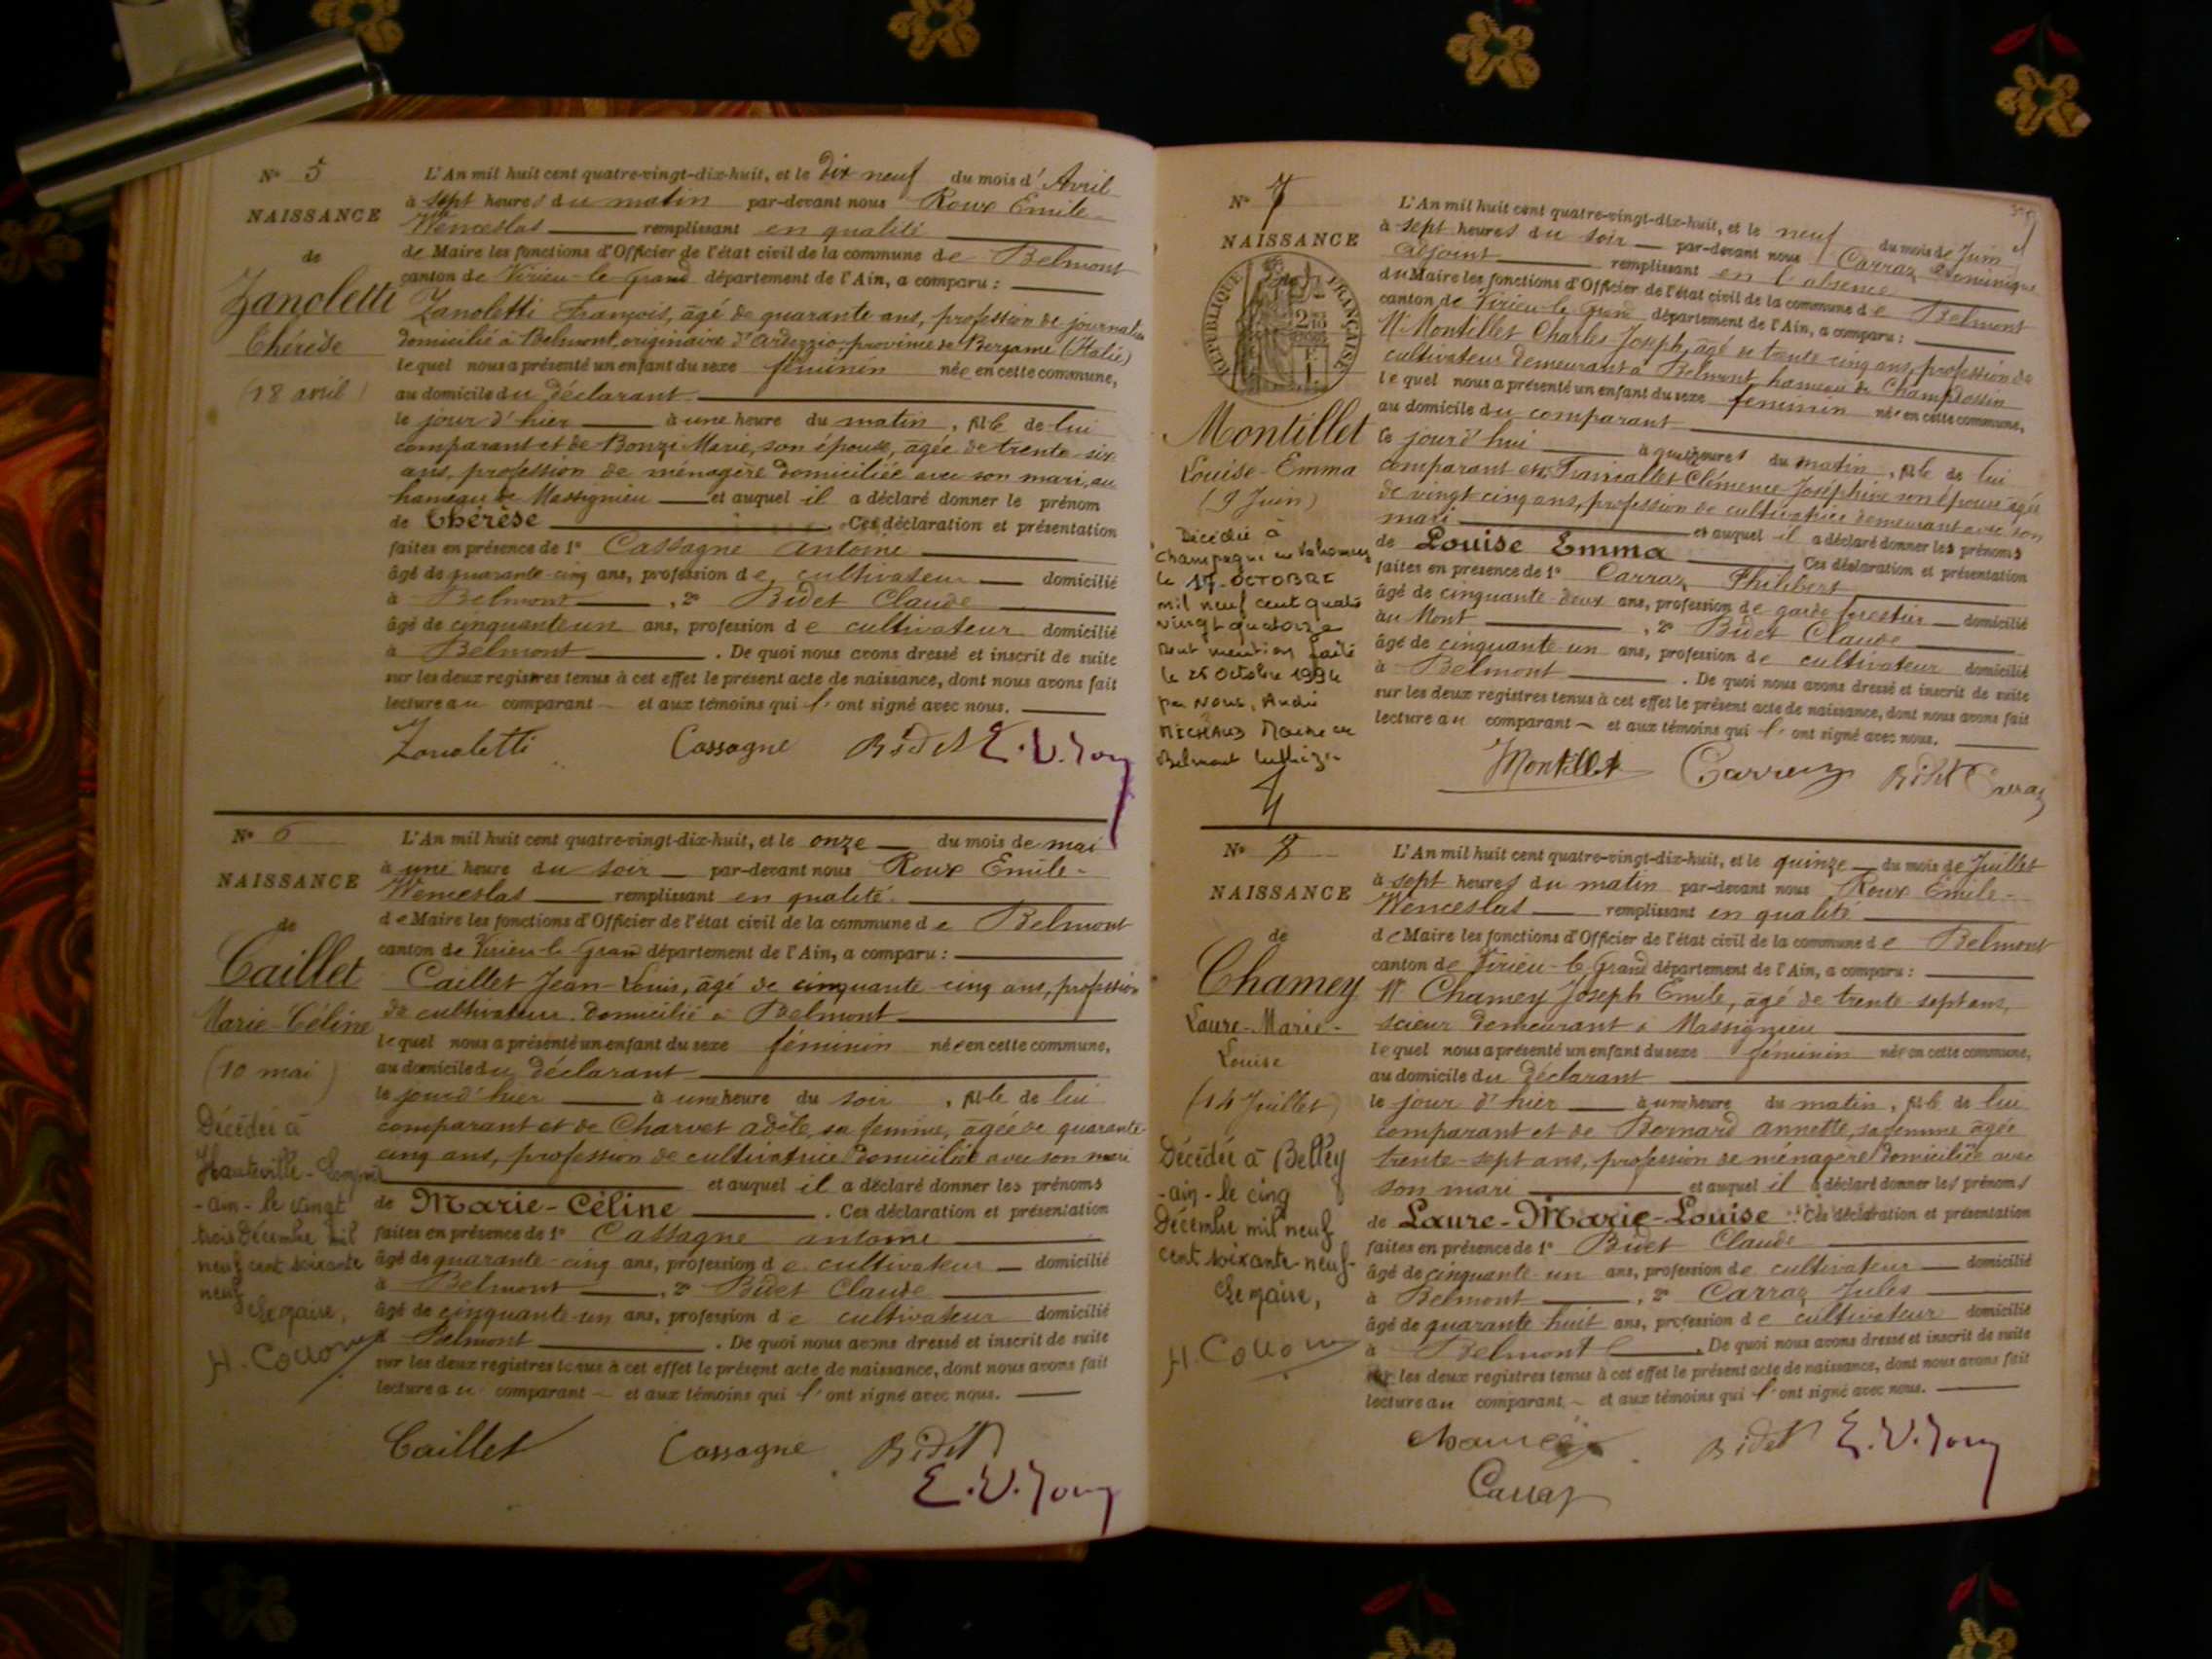 N° 5
NAISSANCE
de
Zanoletti
Thérèse
(18 avril)
L'An mil huit cent quatre-vingt-dix-huit, et le dix neuf du mois d'Avril
à sept heures du matin par-devant nous Roux Emile-
Wenceslas remplissant en qualité
de Maire les fonctions d'Officier de l'état civil de la commune de Belmont
canton de Virieu-le-Grand département de l'Ain, a comparu :
Zanoletti François, âgé de quarante ans, profession de journalier
domicilié à Belmont, originaire d'Ardezzio province de Bergame (Italie)
lequel nous a présenté un enfant du sexe féminin née en cette commune,
au domicile du déclarant
le jour d'hier à une heure du matin, fille de lui
comparant et de Bonzi Marie, son épouse, âgée de trente-six
ans, profession de ménagère domiciliée avec son mari, au
hameau de Massignieu et auquel il a déclaré donner le prénom
de Thérèse. Ces déclaration et présentation
faites en présence de 1° Cassagne Antoine
âgé de quarante-cinq ans, profession de cultivateur domicilié
à Belmont, 2° Bidet Claude
âgé de cinquante un ans, profession de cultivateur domicilié
à Belmont. De quoi nous avons dressé et inscrit de suite
sur les deux registres tenus à cet effet le présent acte de naissance, dont nous avons fait
lecture au comparant et aux témoins qui l'ont signé avec nous.
Zanoletti Cassagne Bidet E.V. Roux
N° 6
NAISSANCE
de
Caillet
Marie-Céline
(10 mai)
Décédée à
Hauteville-Lompnes
-ain- le vingt
trois Décembre mil
neuf cent soixante
neuf
Le Maire,
H. Collomb
L'An mil huit cent quatre-vingt-dix-huit, et le onze du mois de mai
à une heure du soir par-devant nous Roux Emile-
Wenceslas remplissant en qualité
de Maire les fonctions d'Officier de l'état civil de la commune de Belmont
canton de Virieu-le-Grand département de l'Ain, a comparu :
Caillet Jean-Louis, âgé de cinquante-cinq ans, profession
de cultivateur domicilié à Belmont
lequel nous a présenté un enfant du sexe féminin née en cette commune,
au domicile du déclarant
le jour d'hier à une heure du soir, fille de lui
comparant et de Charvet Adèle, sa femme, âgée de quarante
cinq ans, profession de cultivatrice domiciliée avec son mari
et auquel il a déclaré donner les prénoms
de Marie-Céline. Ces déclaration et présentation
faites en présence de 1° Cassagne antoine
âgé de quarante-cinq ans, profession de cultivateur domicilié
à Belmont, 2° Bidet Claude
âgé de cinquante-un ans, profession de cultivateur domicilié
à Belmont. De quoi nous avons dressé et inscrit de suite
sur les deux registres tenus à cet effet le présent acte de naissance, dont nous avons fait
lecture au comparant et aux témoins qui l'ont signé avec nous.
Caillet Cassagne Bidet
E.V. Roux
N° 7
NAISSANCE
RÉPUBLIQUE FRANÇAISE
Montillet
Louise-Emma
(9 Juin)
Décédée à
Champagne en Valromey
le 17 OCTOBRE
mil neuf cent quatre
vingt quatorze
Dont mention faite
le 25 Octobre 1994
par Nous, André
MICHAUD Maire de
Belmont Luthézieu
L'An mil huit cent quatre-vingt-dix-huit, et le neuf du mois de Juin
à sept heures du soir par-devant nous Carraz Dominique
adjoint remplissant en l'absence
du Maire les fonctions d'Officier de l'état civil de la commune de Belmont
canton de Virieu-le-Grand département de l'Ain, a comparu :
Mr Montillet Charles Joseph, âgé de trente-cinq ans, profession de
cultivateur demeurant à Belmont hameau de Champdossin
lequel nous a présenté un enfant du sexe féminin née en cette commune,
au domicile du comparant
ce jourd'hui à heures du matin, fille de lui
comparant et de Clémence Joséphine son épouse âgée
de vingt-cinq ans, profession de cultivatrice demeurant avec son
mari et auquel il a déclaré donner les prénoms
de Louise Emma. Ces déclaration et présentation
faites en présence de 1° Carraz Philibert
âgé de cinquante-deux ans, profession de garde forestier domicilié
au Mont, 2° Bidet Claude
âgé de cinquante-un ans, profession de cultivateur domicilié
à Belmont. De quoi nous avons dressé et inscrit de suite
sur les deux registres tenus à cet effet le présent acte de naissance, dont nous avons fait
lecture au comparant et aux témoins qui l'ont signé avec nous.
Montillet Carraz Bidet Carraz
N° 8
NAISSANCE
de
Chamey
Laure-Marie-
Louise
(14 Juillet)
Décédée à Belley
-ain- le cinq
Décembre mil neuf
cent soixante-neuf-
Le Maire,
H. Collomb
L'An mil huit cent quatre-vingt-dix-huit, et le quinze du mois de Juillet
à sept heures du matin par-devant nous Roux Emile-
Wenceslas remplissant en qualité
de Maire les fonctions d'Officier de l'état civil de la commune de Belmont
canton de Virieu-le-Grand département de l'Ain, a comparu :
Mr Chamey Joseph Emile, âgé de trente-sept ans,
scieur demeurant à Massignieu
lequel nous a présenté un enfant du sexe féminin née en cette commune,
au domicile du déclarant
le jour d'hier à une heure du matin, fille de lui
comparant et de Bernard Annette, sa femme âgée
trente-sept ans, profession de ménagère domiciliée avec
son mari et auquel il a déclaré donner les prénoms
de Laure-Marie-Louise. Ces déclaration et présentation
faites en présence de 1° Bidet Claude
âgé de cinquante-un ans, profession de cultivateur domicilié
à Belmont, 2° Carraz Jules
âgé de quarante huit ans, profession de cultivateur domicilié
à Belmont. De quoi nous avons dressé et inscrit de suite
sur les deux registres tenus à cet effet le présent acte de naissance, dont nous avons fait
lecture au comparant et aux témoins qui l'ont signé avec nous.
Chamey Bidet E.V. Roux
Carraz